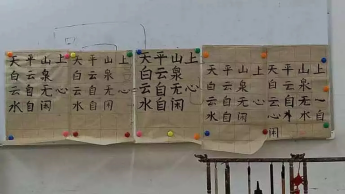 天平山上
白云泉
云自无心
水自闲
天平山上
白云泉
云自无心
水自闲
天平山上
白云泉
云自无心
水自闲
天平山上
白云泉
云自无心
水自闲
天平山上
白云泉
云水无
心水自
闲